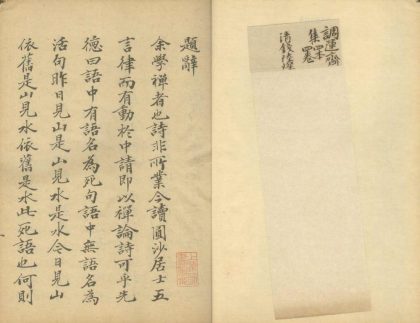 調運齋
集四本
四卷
清錢陸燦
題辭
余學禪者也詩非所業今讀圓沙居士五
言律而有動於中請即以禪論詩可乎先
德曰語中有語名為死句語中無語名為
活句昨日見山是山見水是水今日見山
依舊是山見水依舊是水此死語也何則